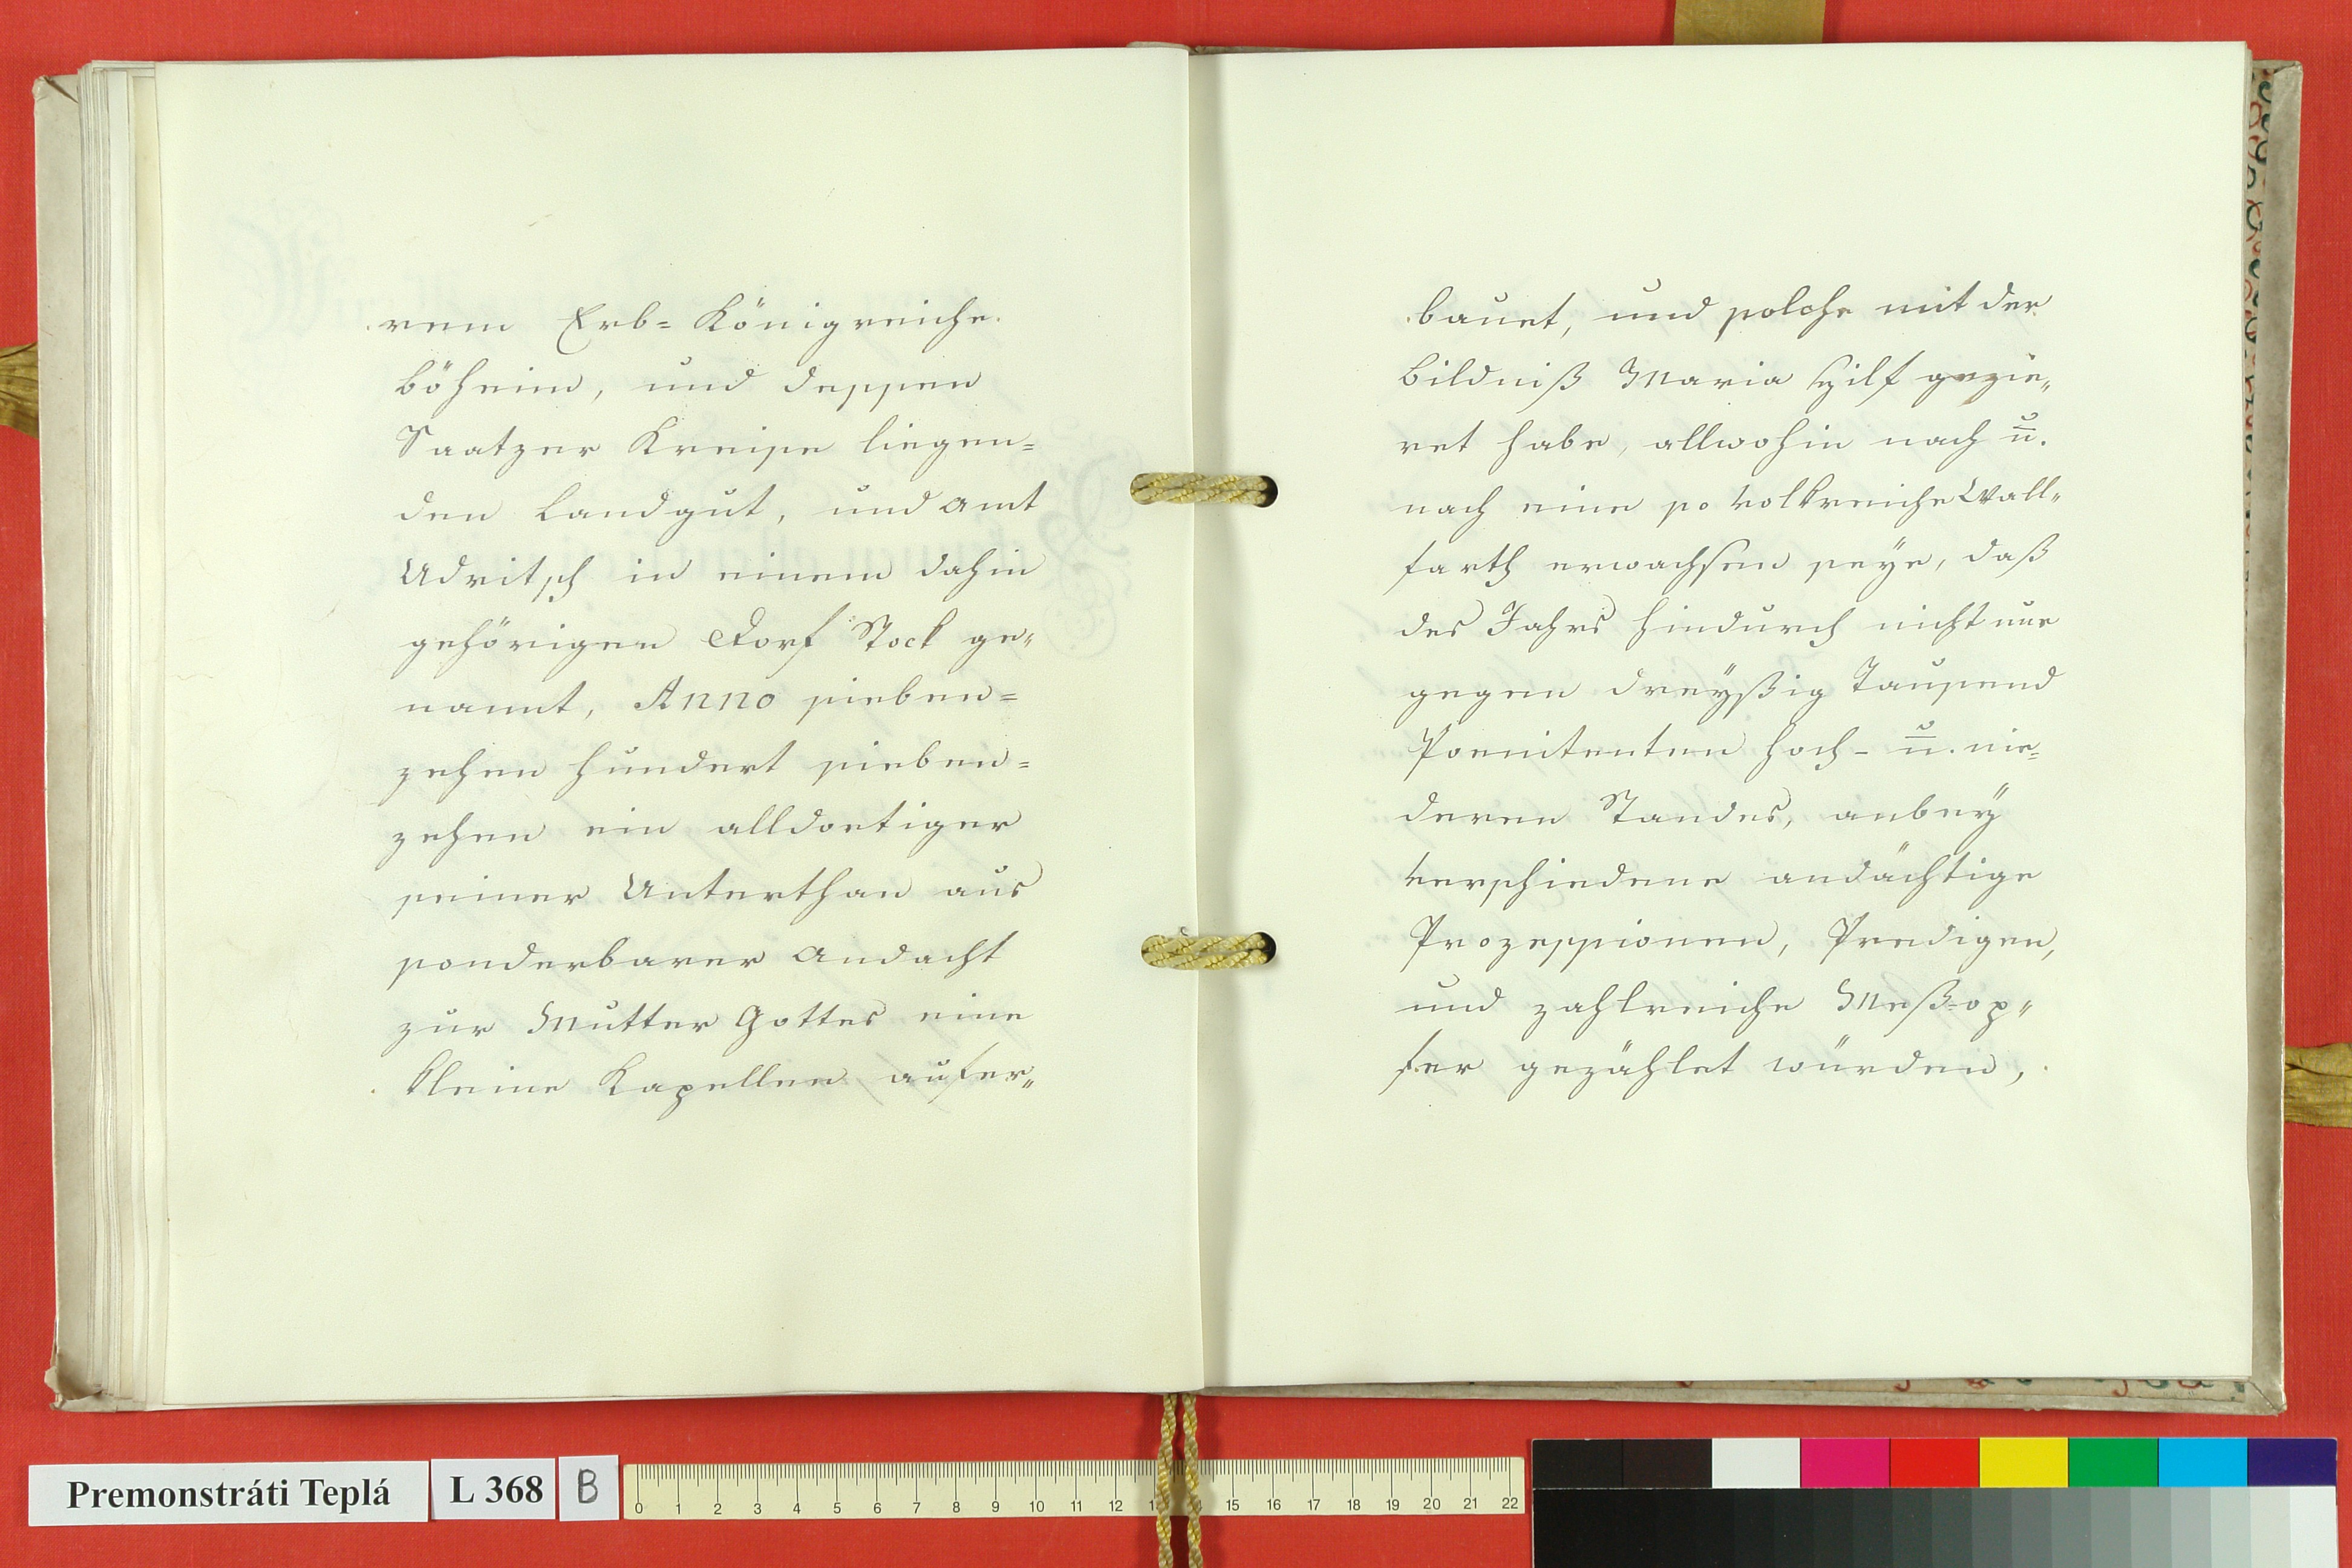 rem Erb= Königreiche
böheim, und dessen
Saatzer Kreise liegen=
den Landgut, und Amt
Udritsch in einem dahin
gehörigen Dorf Stock ge„
nannt, Anno sieben=
zehen hundert sieben=
zehen ein alldortiger
seiner Unterthan aus
sonderbarer Andacht
zur Mutter Gottes eine
kleine Kapellen aufer„
bauet, und solche mit der
bildniß Maria Hilf gezie„
ret habe, allwohin nach u.
nach eine so volkreiche Wall„
farth erwachsen seÿe, daß
des Jahrs hindurch nicht nur
gegen dreÿßig Tausend
Poenitenten hoch- u. nie=
deren Standes, anbeÿ
verschiedene andächtige
Prozessionen, Predigen,
und zahlreiche Meß-op„
fer gezählet würden,
Premonstráti Teplá L 368 B
0 1 2 3 4 5 6 7 8 9 10 11 12 13 14 15 16 17 18 19 20 21 22